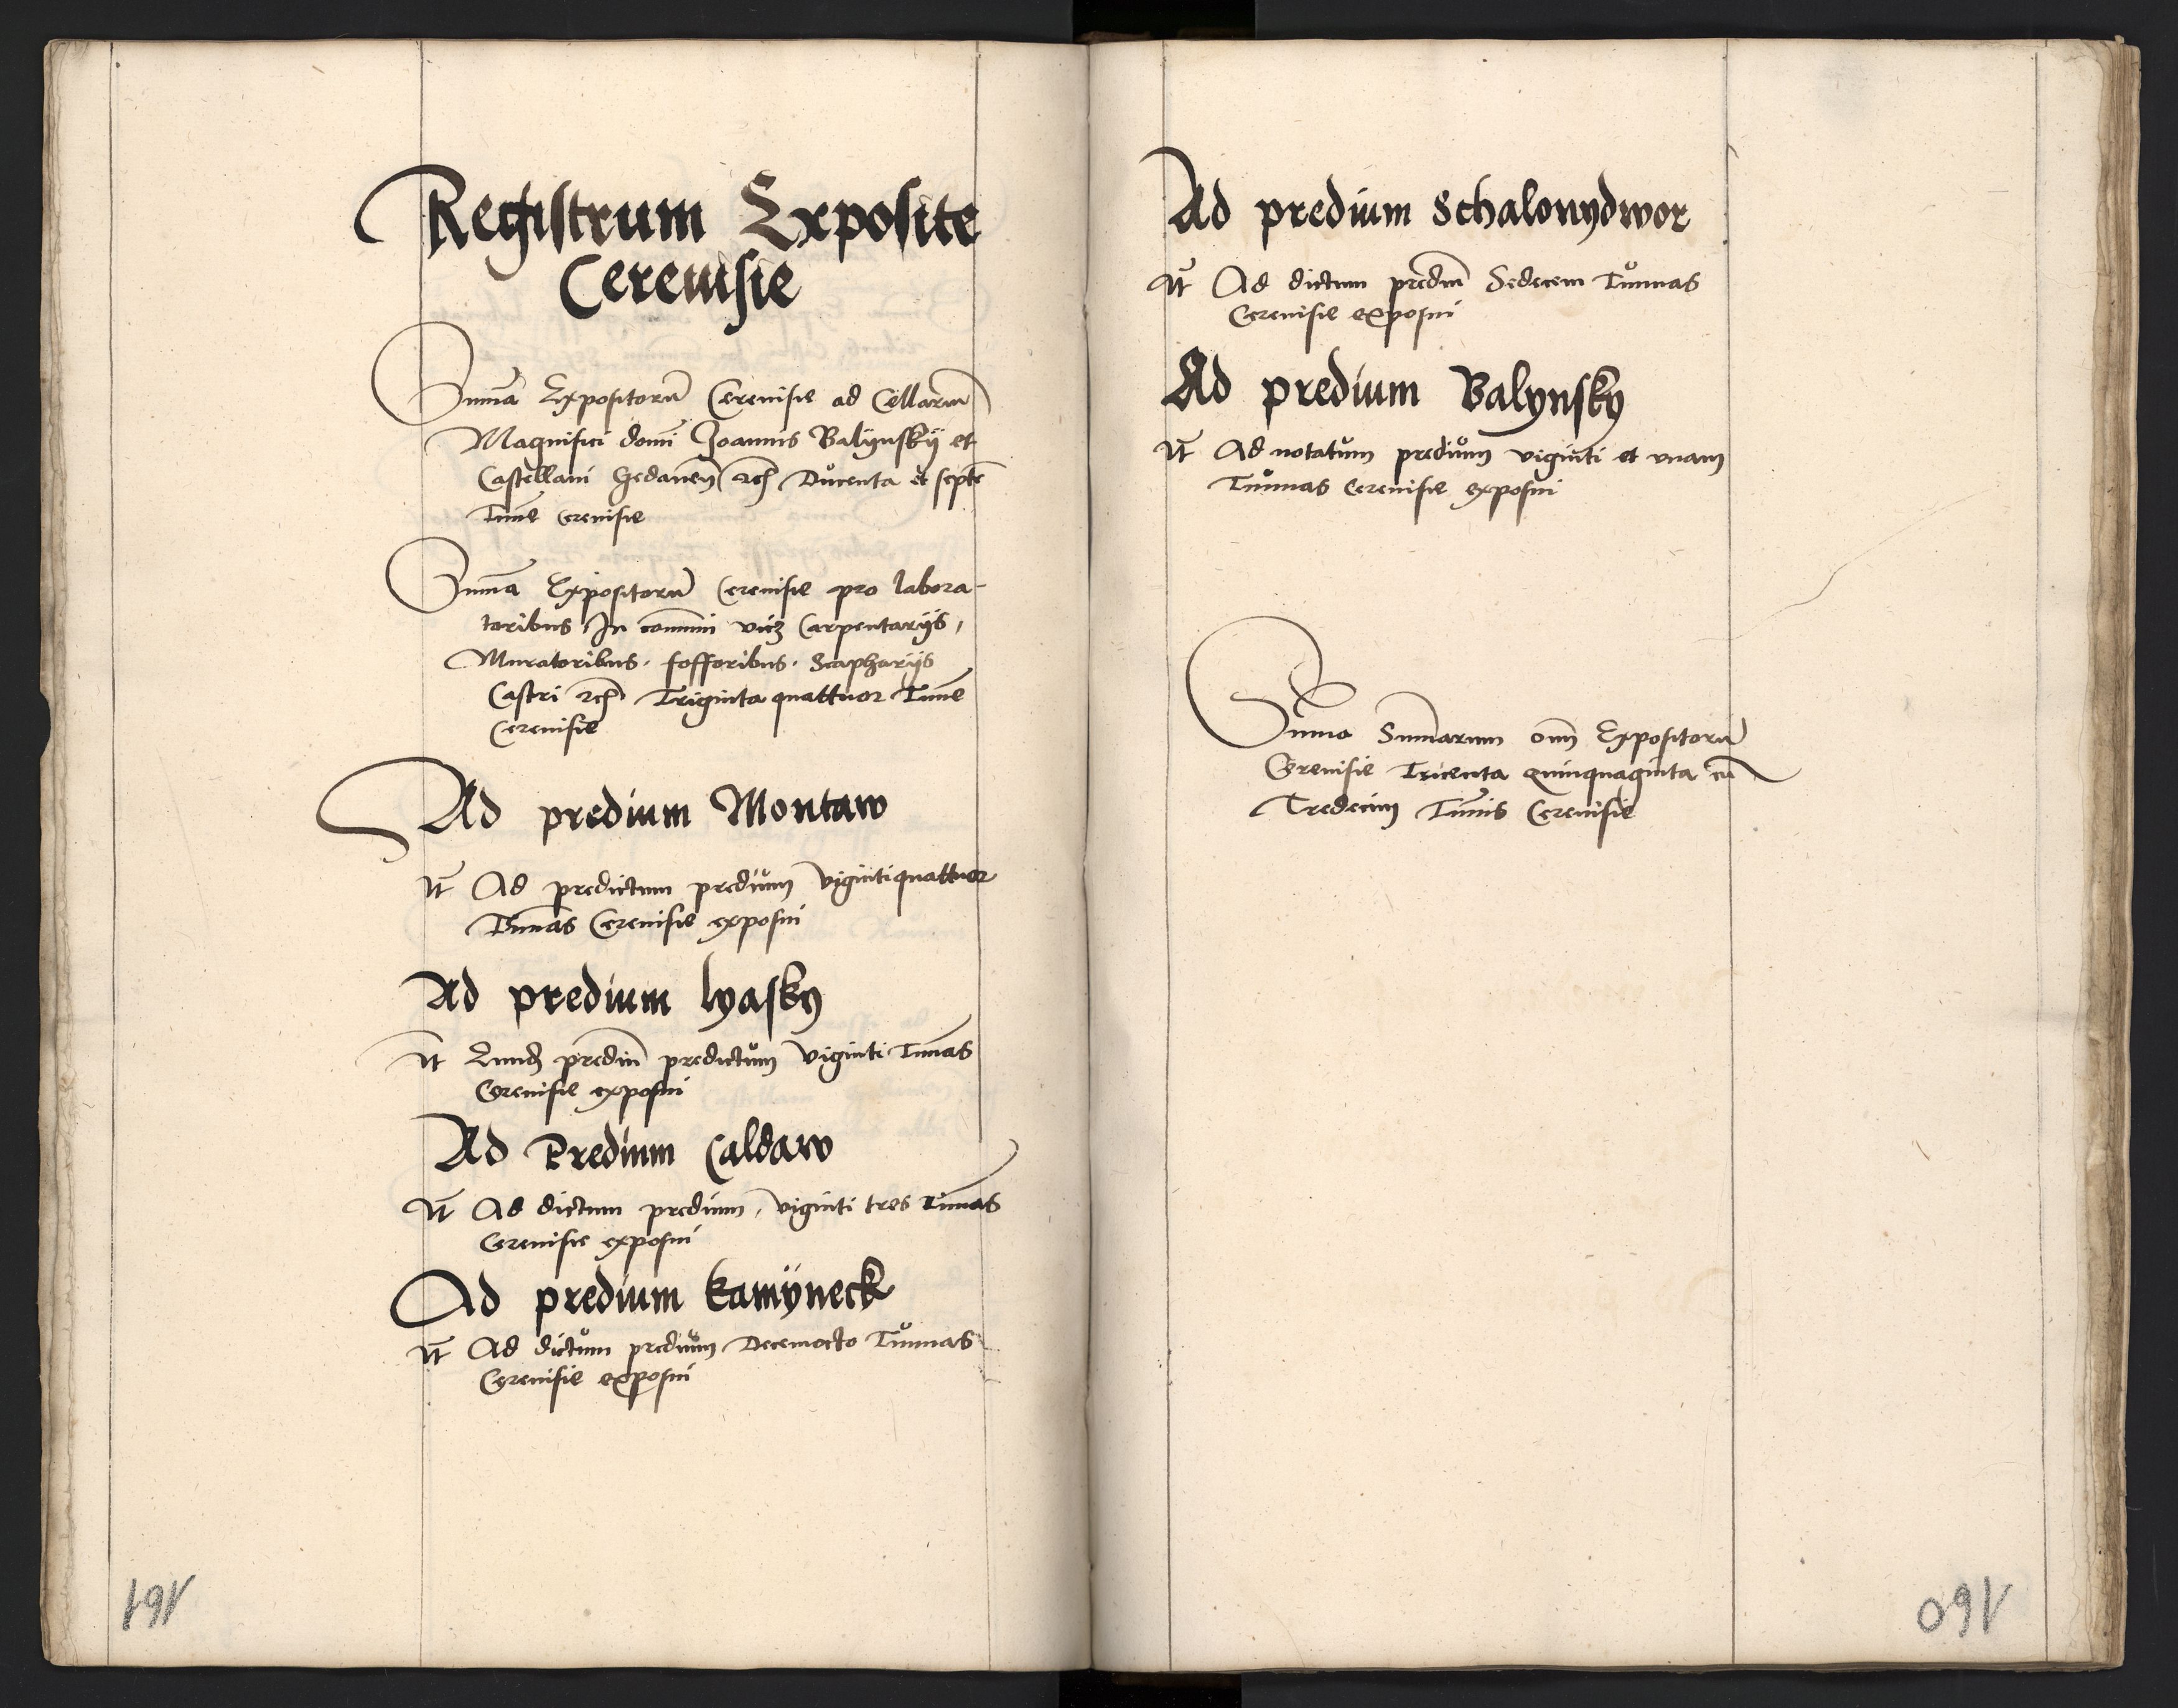 Registrum Exposite
Cerevisie
Summa Expositorum Cerevisie ad Cellarium
Magnifici domini Joannis Balÿnskÿ et
Castellani Gedanen Ducenta et septem
Tunne Cerevisie
Summa Expositorum Cerevisie pro labora-
toribus In communi vicz Carpentariis,
Muratoribus. fossoribus. Scaphariis
Castri Triginta quattuor Tunne
Cerevisie
Ad predium Montaw
It Ad predictum predium vigintiquattuor
Tunnas Cerevisie exposui
Ad predium lyasky
It predium predictum viginti Tunnas
Cerevisie exposui
Ad Predium Caldaw
It Ad dictum predium, viginti tres Tunnas
Cerevisie exposui
Ad predium kamÿneck
It Ad dictum predium Decemocto Tunnas
Cerevisie exposui
161
Ad predium Schalonydwor
It Ad dictum predium Sedecem Tunnas
Cerevisie exposui
Ad predium Balynsky
It Ad notatum predium viginti et vnam
Tunnas Cerevisie exposui
Summa Summarum omnium Expositorum
Cerevisie Tricenta quinquaginta cum
Tredecim Tunnis Cerevisie
160